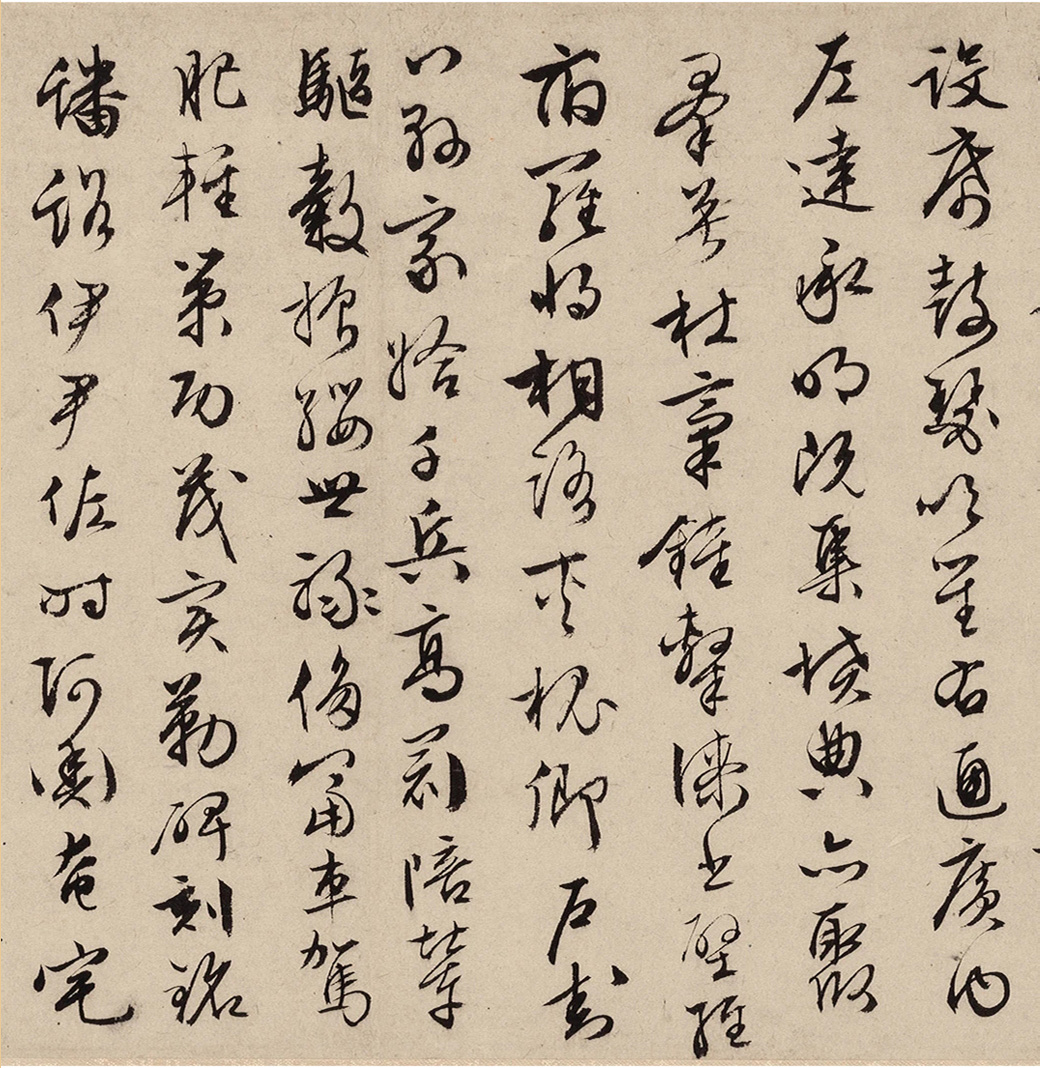 設席鼓瑟吹笙右通廣內
左達承明既集墳典亦聚
羣英杜稾鍾隸漆書壁經
府羅將相路夾槐卿戶封
八縣家給千兵高冠陪輦
驅轂振纓世祿侈富車駕
肥輕策功茂實勒碑刻銘
磻谿伊尹佐時阿衡奄宅